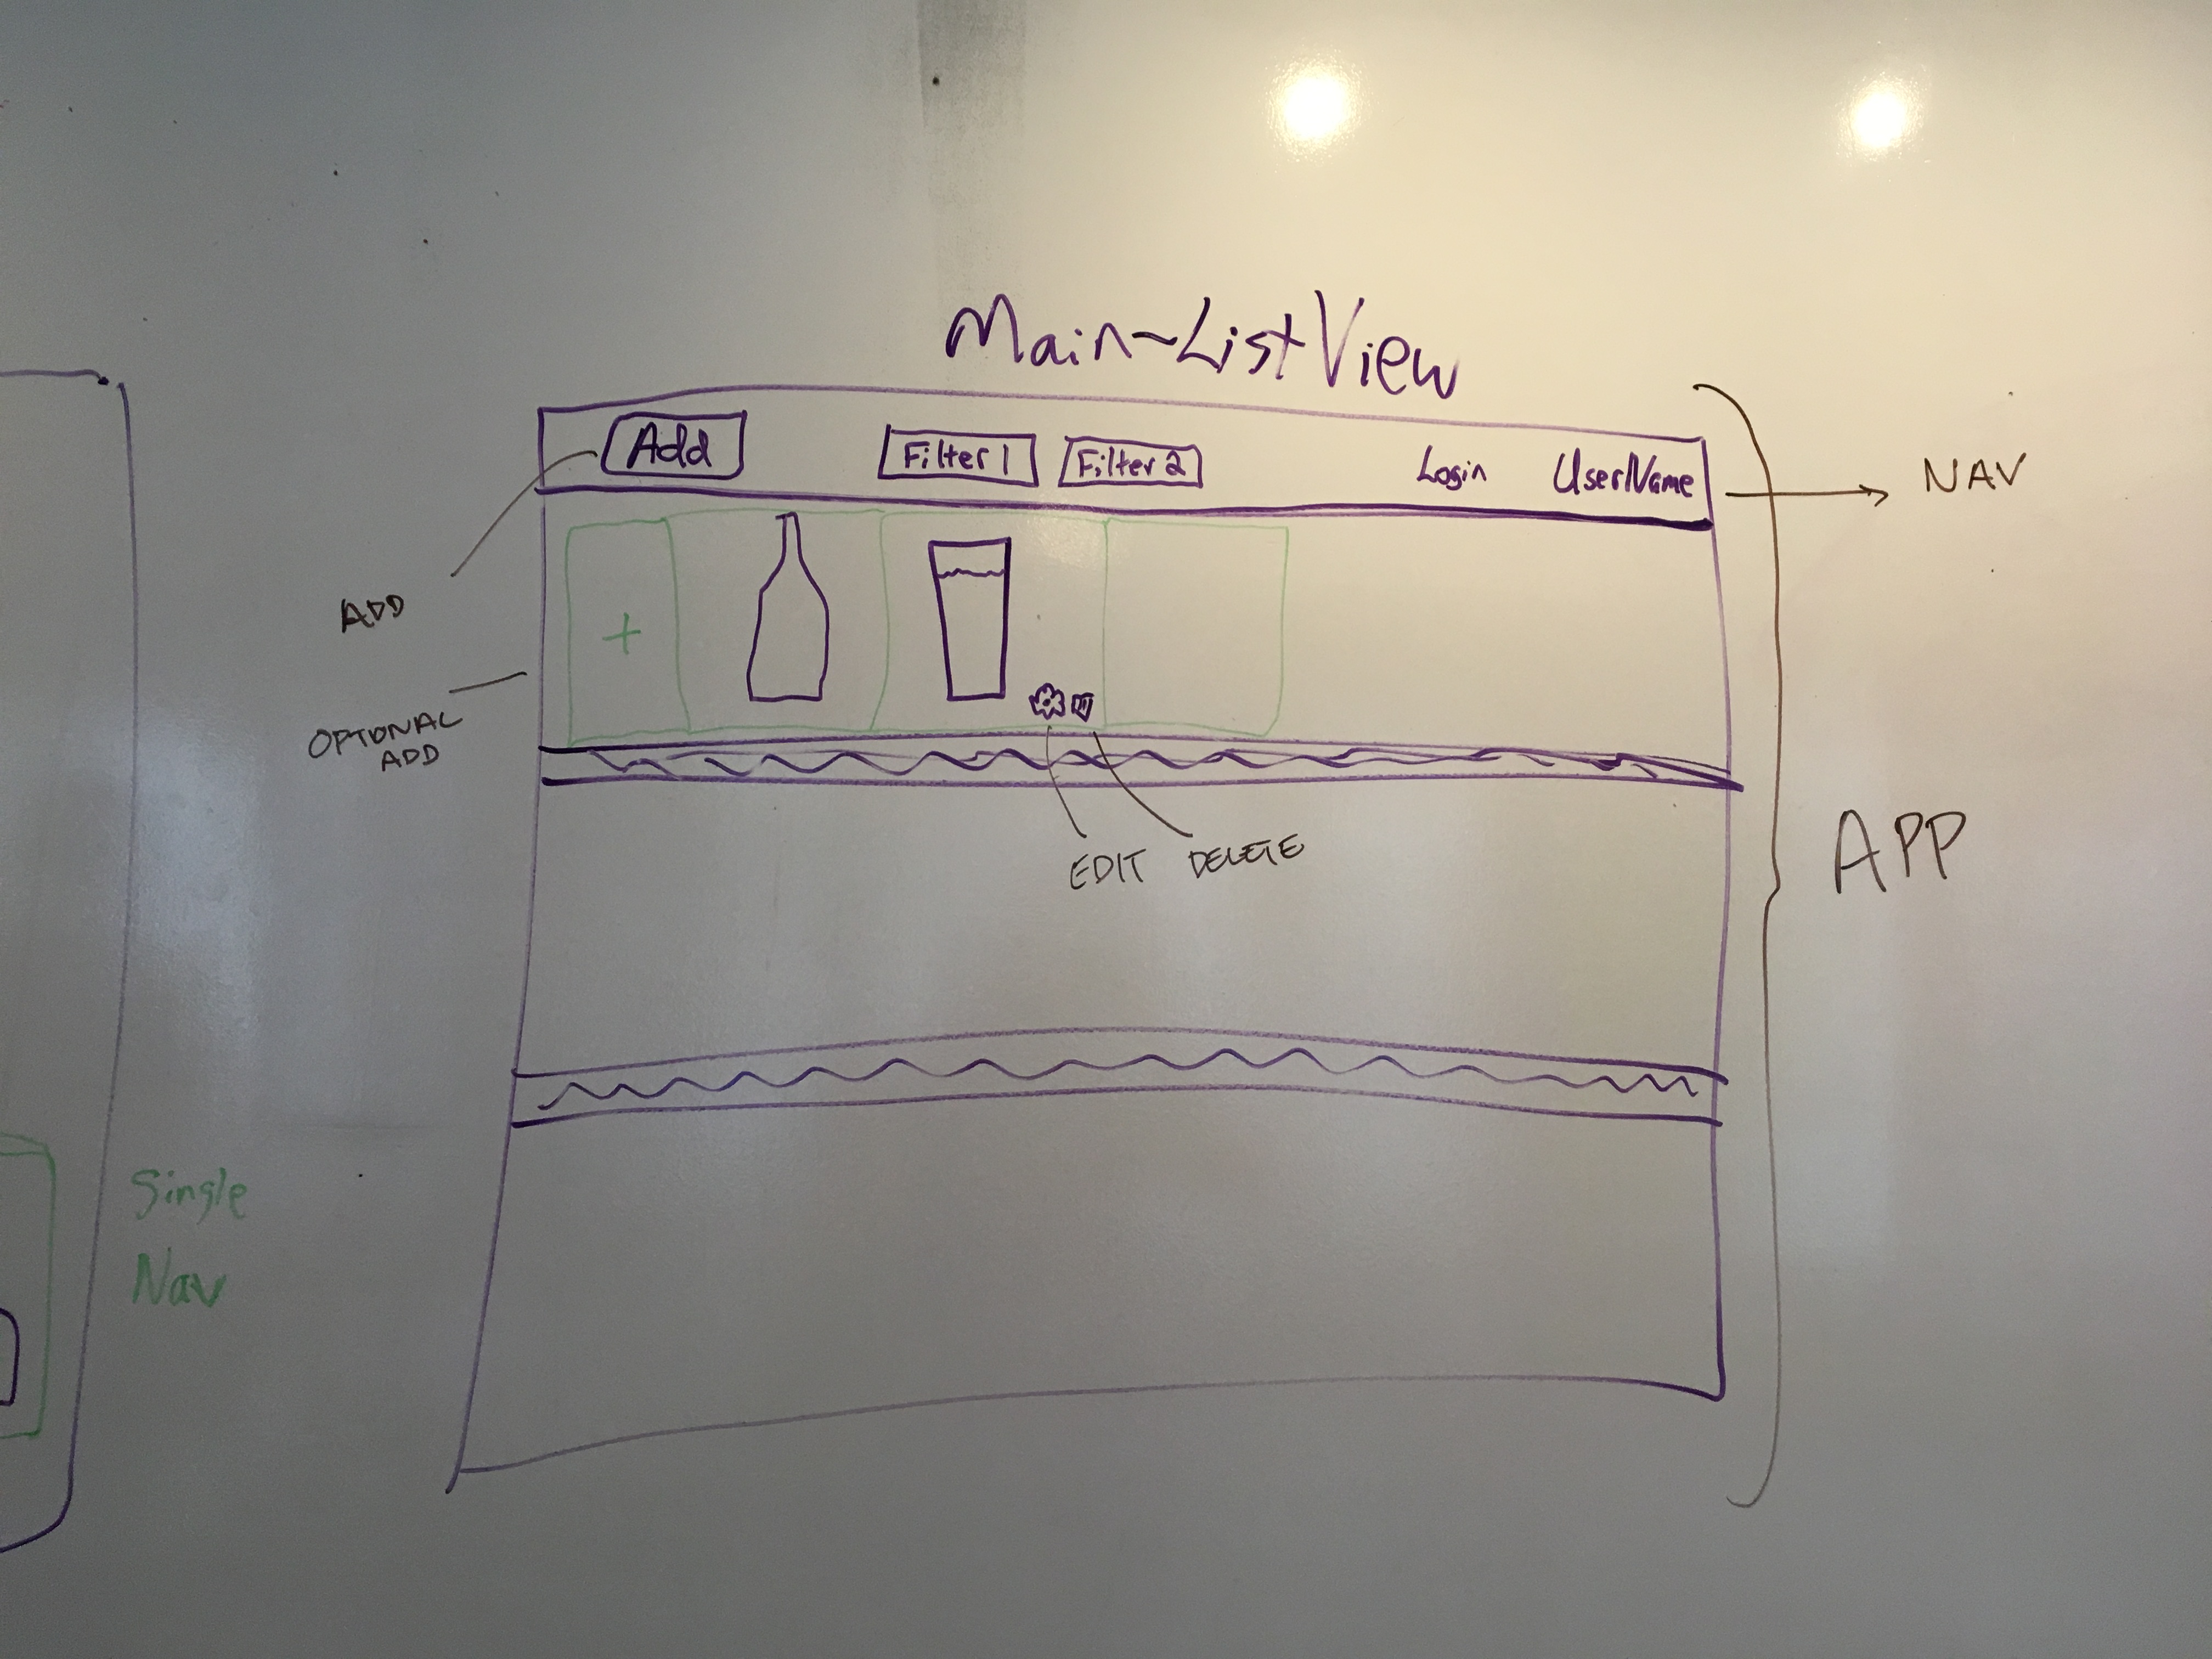 Main-List View
Add
Filter 1
Filter 2
Login
UserName
NAV
ADD
+
OPTIONAL
ADD
EDIT
DELETE
APP
Single
Nav